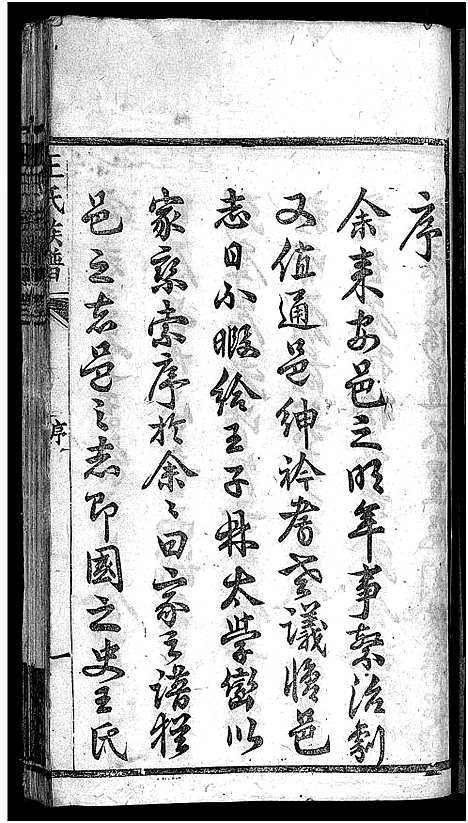 序
余来安邑之明年事繁治劇
又值通邑紳衿耆老議脩邑
志日不暇給王子冊太學巒以
家乘索序於余々曰家之譜猶
邑之志邑之志即國之史王氏
王氏族譜
序
一